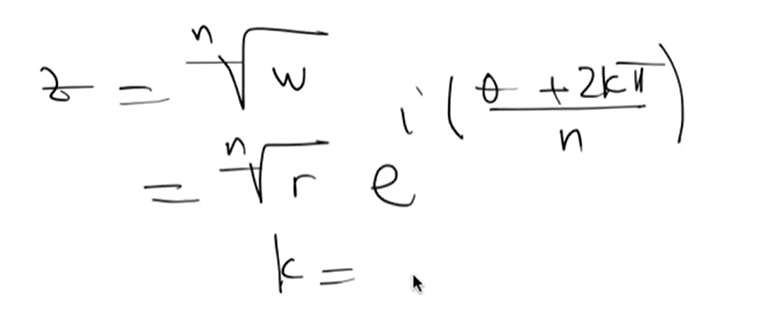 z = ⁿ√w
= ⁿ√r e^{i(θ + 2kπ / n)}
k =